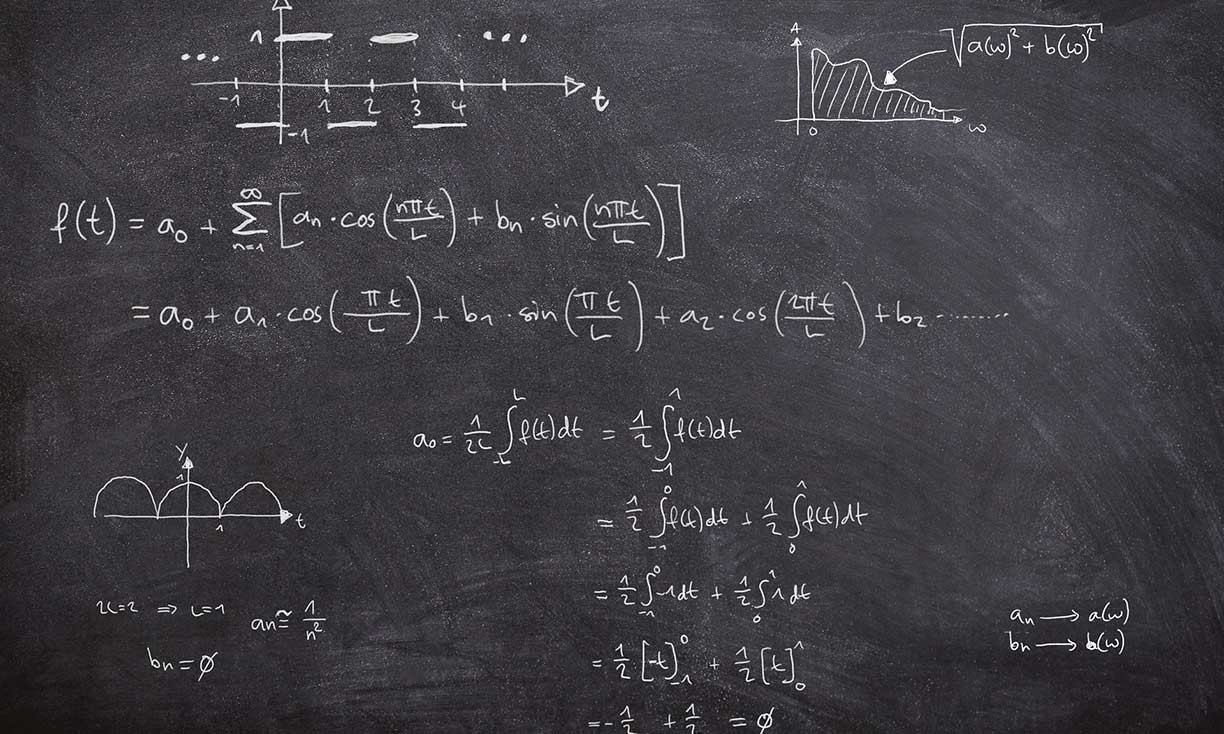 1
...
...
-1 1 2 3 4 t
-1
A
√a(ω)² + b(ω)²
0 ω
f(t) = a₀ + ∑ₙ₌₁^∞ [aₙ · cos(nπt/L) + bₙ · sin(nπt/L)]
= a₀ + a₁ · cos(πt/L) + b₁ · sin(πt/L) + a₂ · cos(2πt/L) + b₂ ·········
a₀ = 1/2L ∫₋L^L f(t)dt = 1/2 ∫₋₁^1 f(t)dt
= 1/2 ∫₋₁^0 f(t)dt + 1/2 ∫₀^1 f(t)dt
= 1/2 ∫₋₁^0 -1dt + 1/2 ∫₀^1 1dt
= 1/2 [-t]₋₁^0 + 1/2 [t]₀^1
= -1/2 + 1/2 = ∅
y
1
1 t
2L=2 ⇒ L=1
aₙ ≅ 1/n²
bₙ = ∅
aₙ → a(ω)
bₙ → b(ω)